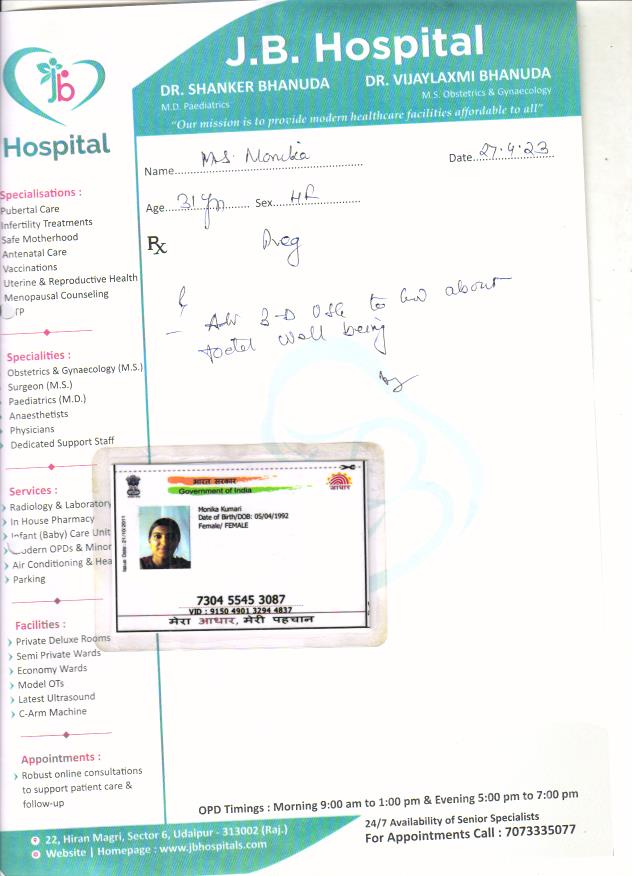 J.B. Hospital
DR. SHANKER BHANUDA
M.D. Paediatrics
DR. VIJAYLAXMI BHANUDA
M.S. Obstetrics & Gynaecology
"Our mission is to provide modern healthcare facilities affordable to all"
jb
Hospital
Name Ms. Monika
Date 27.4.23
Age 31 yr Sex
Rx
Preg
3-D USG to about
foetal well being
Specialisations :
Pubertal Care
Infertility Treatments
Safe Motherhood
Antenatal Care
Vaccinations
Uterine & Reproductive Health
Menopausal Counseling
TP
Specialities :
Obstetrics & Gynaecology (M.S.)
Surgeon (M.S.)
Paediatrics (M.D.)
Anaesthetists
Physicians
Dedicated Support Staff
Services :
Radiology & Laboratory
In House Pharmacy
Infant (Baby) Care Unit
odern OPDs & Minor
Air Conditioning & Hea
Parking
Facilities :
Private Deluxe Rooms
Semi Private Wards
Economy Wards
Model OTs
Latest Ultrasound
C-Arm Machine
Appointments :
Robust online consultations
to support patient care &
follow-up
भारत सरकार
Government of India
आधार
Issue Date: 21/10/2011
Monika Kumari
Date of Birth/DOB: 05/04/1992
Female/ FEMALE
7304 5545 3087
VID : 9150 4901 3294 4837
मेरा आधार, मेरी पहचान
OPD Timings : Morning 9:00 am to 1:00 pm & Evening 5:00 pm to 7:00 pm
22, Hiran Magri, Sector 6, Udaipur - 313002 (Raj.)
Website | Homepage : www.jbhospitals.com
24/7 Availability of Senior Specialists
For Appointments Call : 7073335077